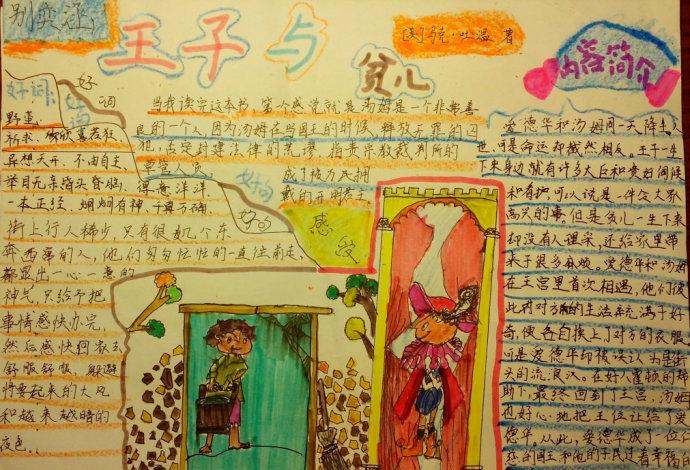 王子与贫儿
[美]马克·吐温 著
内容简介
好词
好词
野蛮、
祈求、欣喜若狂
异想天开、不由自主、
举目无亲、昏头昏脑、得意洋洋
一本正经、炯炯有神、千真万确、
好句
好句
街上行人稀少，只有很少几个东
奔西窜的人，他们匆匆忙忙的一直往前走，
都露出一心一意的
神气，只给予把
事情感快办完，
然后感快回家去
舒服舒服，躲避
将要起来的大风
和越来越暗的
夜色。
感受
当我读完这本书，第一个感觉就是汤姆是一个非常善
良的一个人，因为汤姆在当国王的时候，释放无罪的囚
犯，否定封建法律的荒谬，指责宗教裁判所的
成了被万民拥
戴的开明君主
爱德华和汤姆同一天降去人
世，可是命运却截然相反。王子一生下
来身边就有许多大臣和贵妇伺候
和看护可以说是一件大大众
高兴的事但是贫儿一生下来
却没有人理采，还给家里带
来了很多麻烦。爱德华和汤姆
在王宫里首次相遇，他们彼
此对对方的生活都充满了好
奇，便各自换上了对方的衣服
可是爱德华却被误认为是街
头的流浪汉。在好人霍顿的帮
助下，最终回到了王宫，汤姆
也好心地把王位让给了爱
德华，从此，爱德华成了一位仁
慈的国王和他的子民过着幸福的